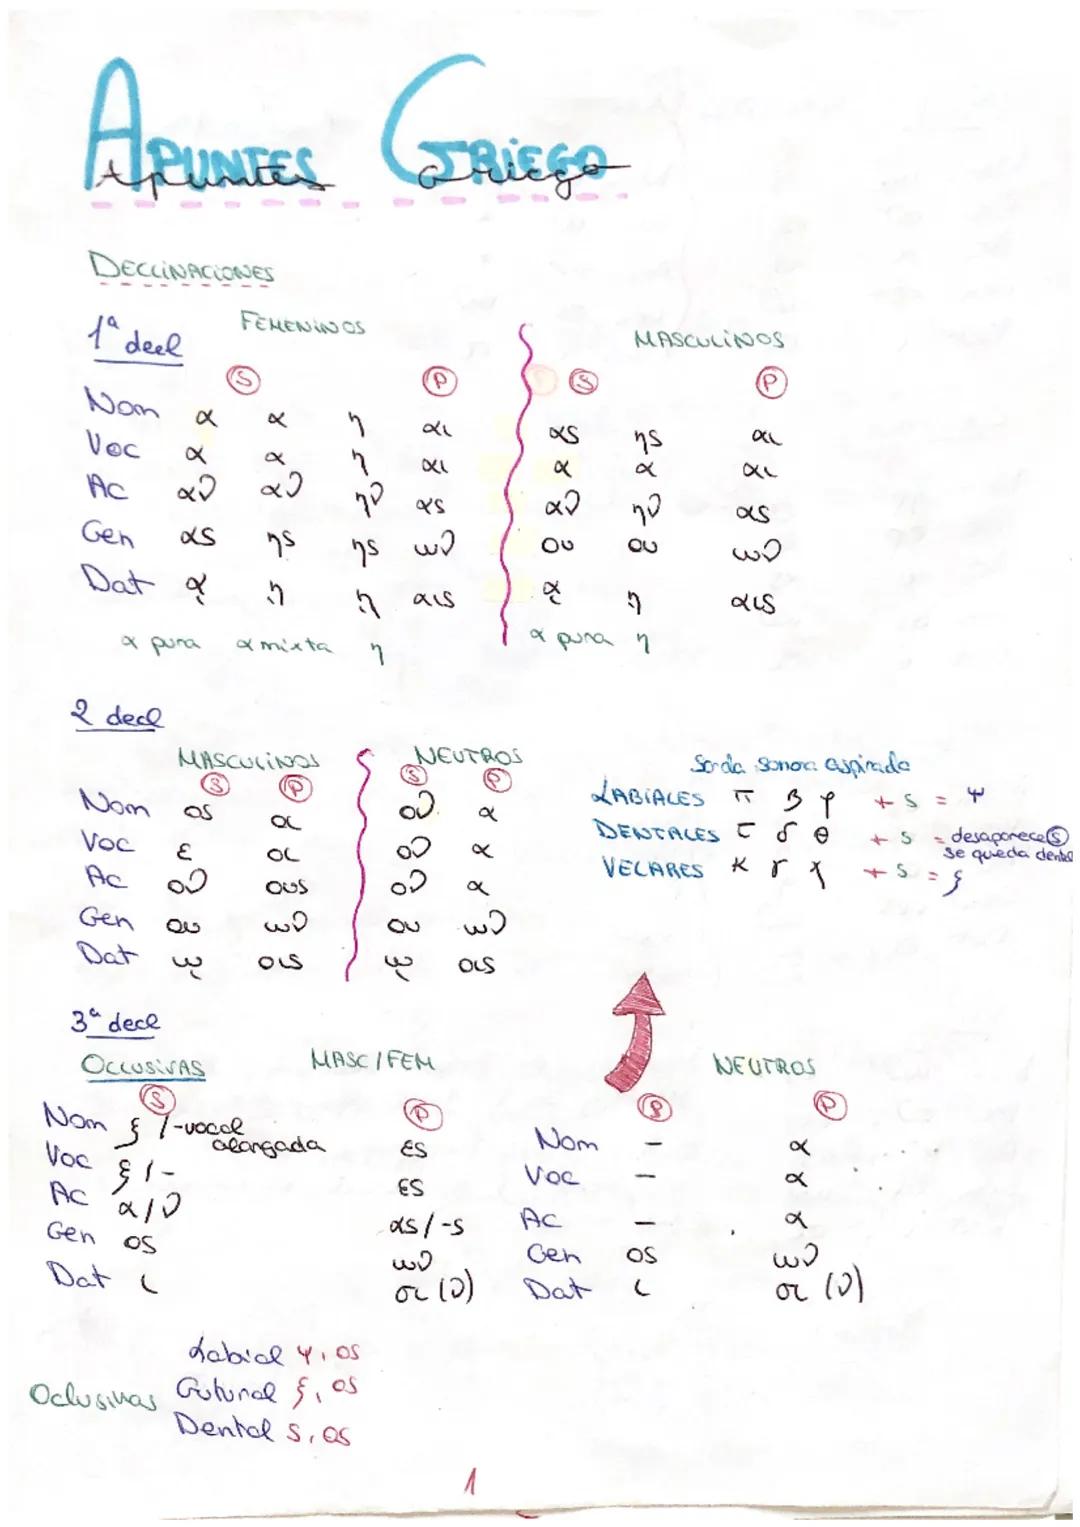 APUNTES GRIEGO
Apuntes Griego
DECLINACIONES
1ª decl
FEMENINOS
MASCULINOS
S P S P
Nom α α η αι ας ης αι
Voc α α η αι α α αι
Ac αν αν ην ας αν ην ας
Gen ας ης ης ων ου ου ων
Dat ᾳ ῃ ῃ αις ᾳ ῃ αις
α pura α mixta η α pura η
2 decl
MASCULINOS NEUTROS
S P S P
Nom ος οι ον α
Voc ε οι ον α
Ac ον ους ον α
Gen ου ων ου ων
Dat ῳ οις ῳ οις
Sorda sonora aspirada
LABIALES π β φ + s = ψ
DENTALES τ δ θ + s = desaparece S
se queda dental
VELARES κ γ χ + s = ξ
3ª decl
OCLUSIVAS MASC/FEM NEUTROS
S P S P
Nom ξ /-vocal
alargada ες
Voc ξ /- ες
Ac α/ν ας/-s
Gen ος ων
Dat ι σι (ν)
Nom - α
Voc - α
Ac - α
Gen ος ων
Dat ι σι (ν)
Labial ψ, ος
Oclusivas Gutural ξ, ος
Dental s, ος
1